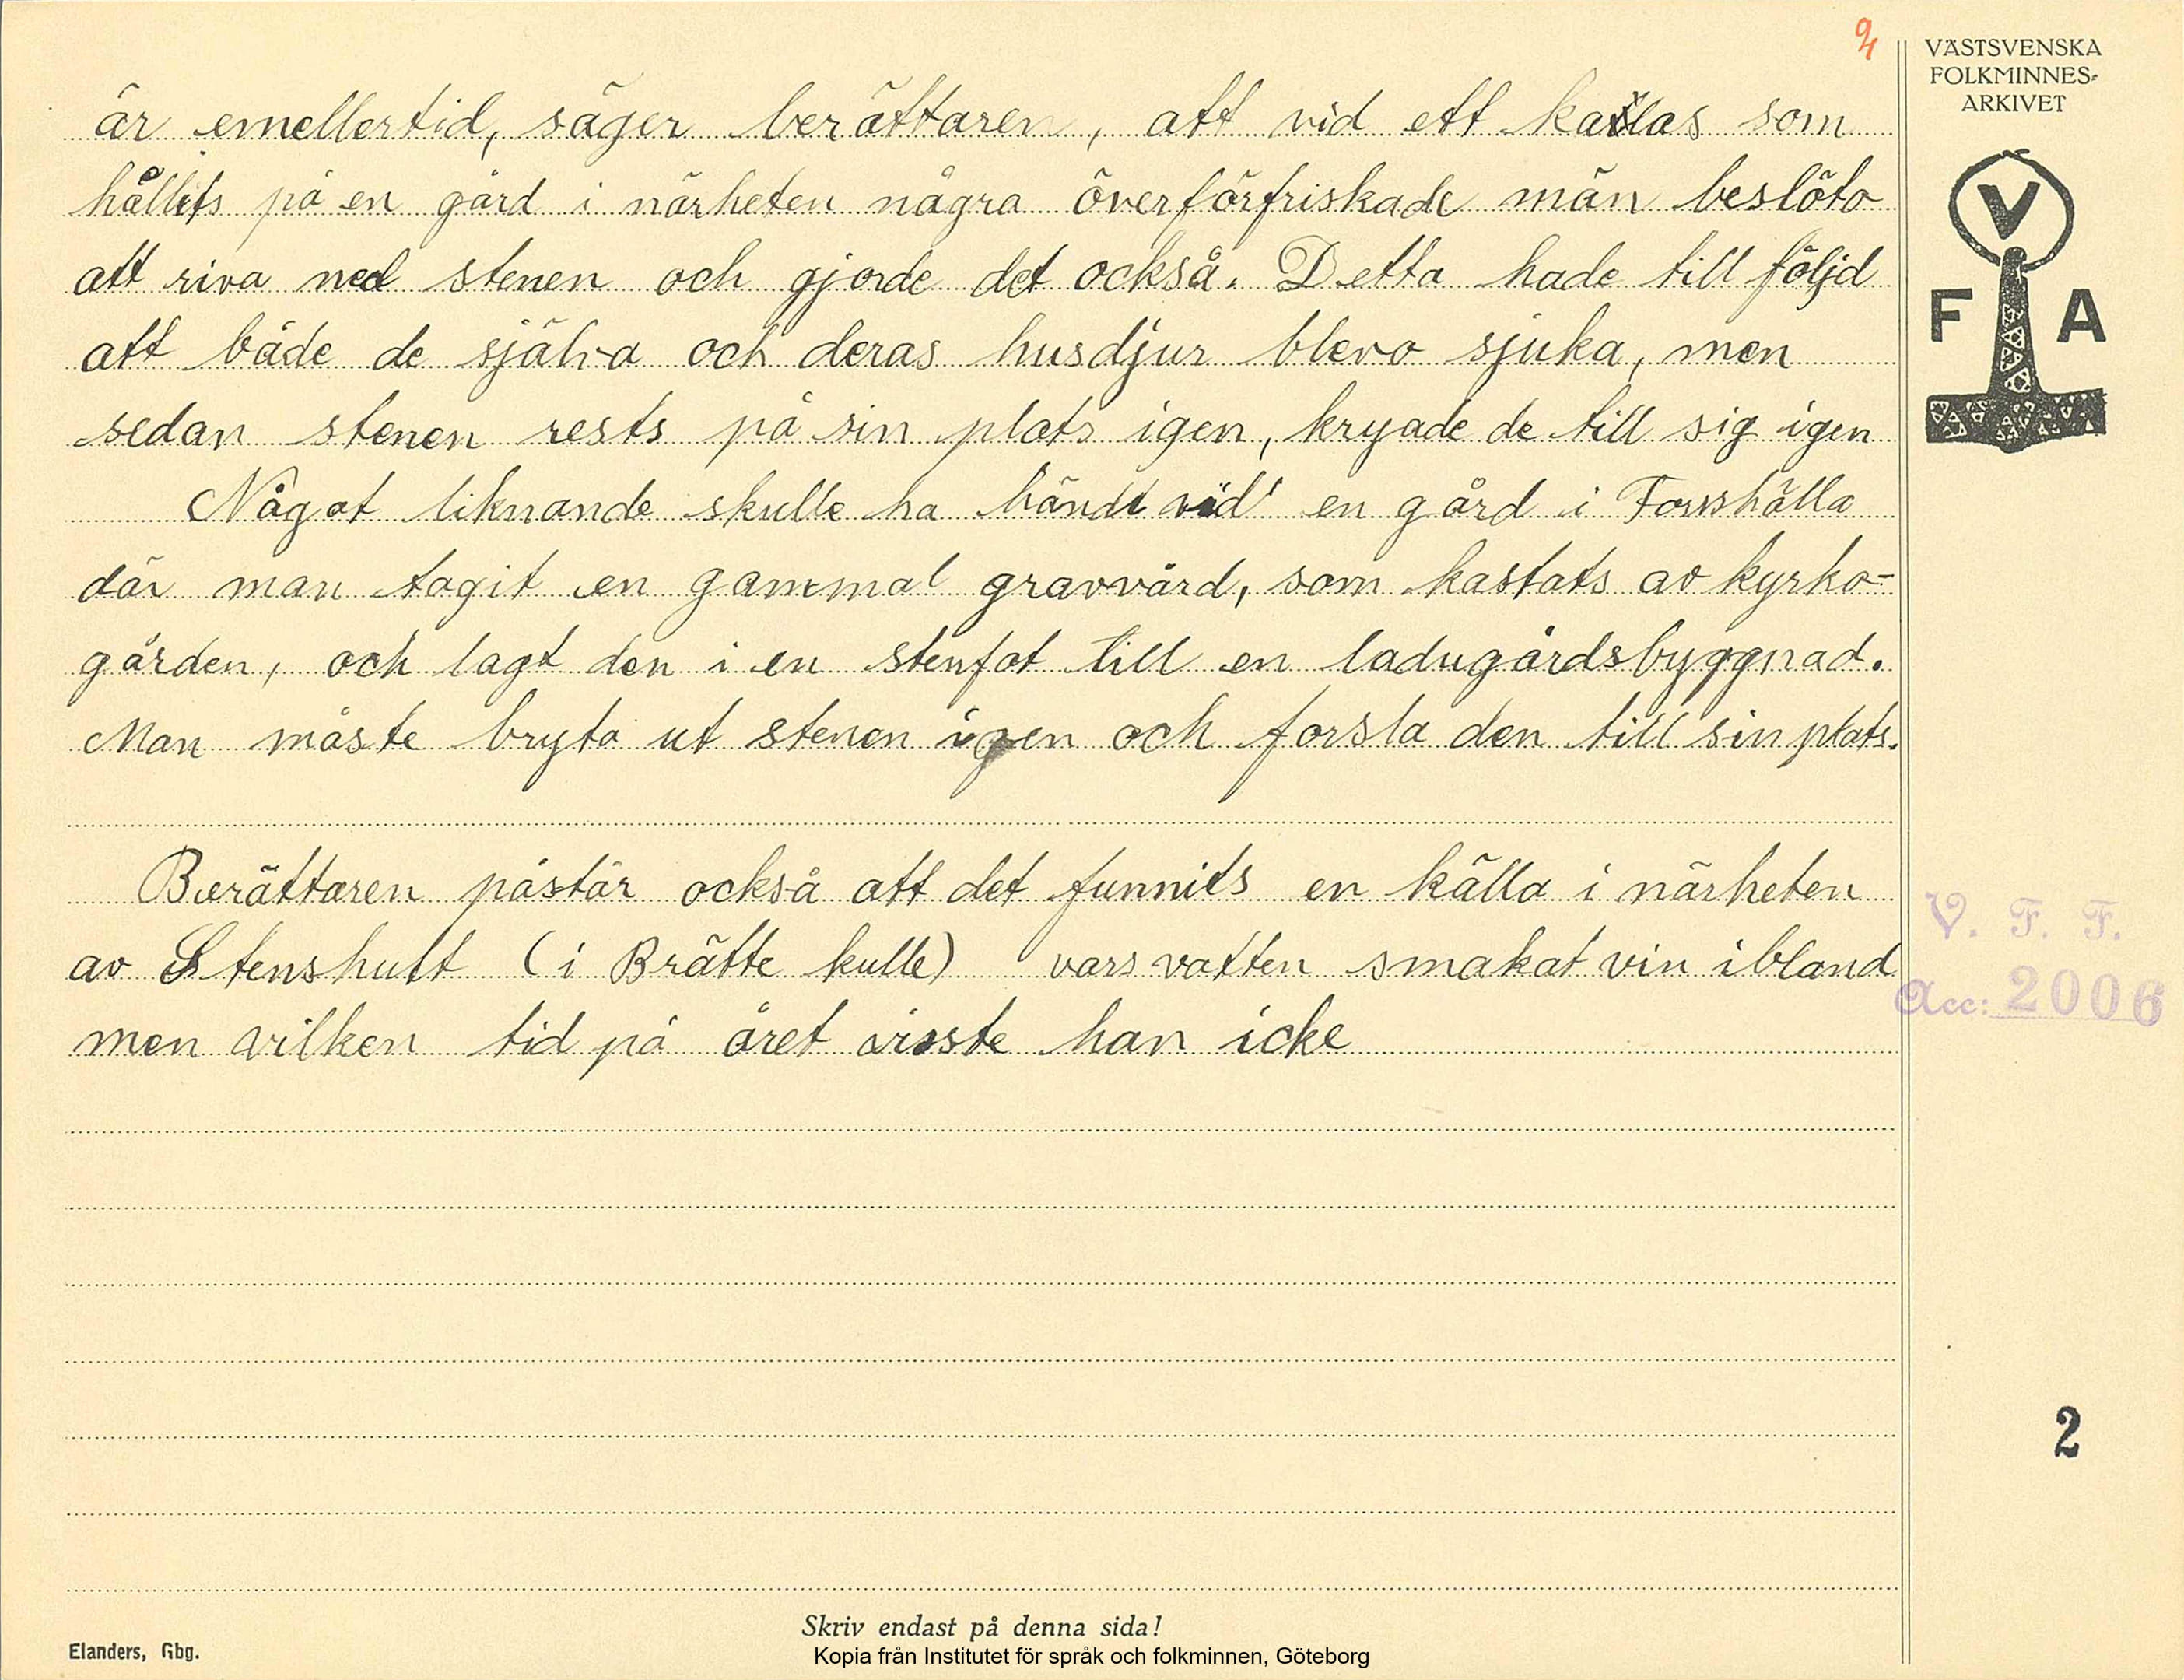 är emellertid, säger berättaren, att vid ett kaslas som
hållits på en gård i närheten några överförfriskade män beslöto
att riva ned stenen och gjorde det också. Detta hade till följd
att både de själva och deras husdjur blevo sjuka, men
sedan stenen rests på sin plats igen, kryade de till sig igen
Något liknande skulle ha händt vid en gård i Forshälla
där man tagit en gammal gravvård, som kastats av kyrko-
gården, och lagt den i en stenfot till en ladugårdsbyggnad.
Man måste bryta ut stenen igen och forsla den till sin plats.
Berättaren påstår också att det funnits en källa i närheten
av Stenshutt (i Brätte kulle) vars vatten smakat vin ibland
men vilken tid på året visste han icke
VÄSTSVENSKA
FOLKMINNES-
ARKIVET
V
F A
V. F. F.
Acc: 2006
2
Skriv endast på denna sida!
Elanders, Gbg.
Kopia från Institutet för språk och folkminnen, Göteborg